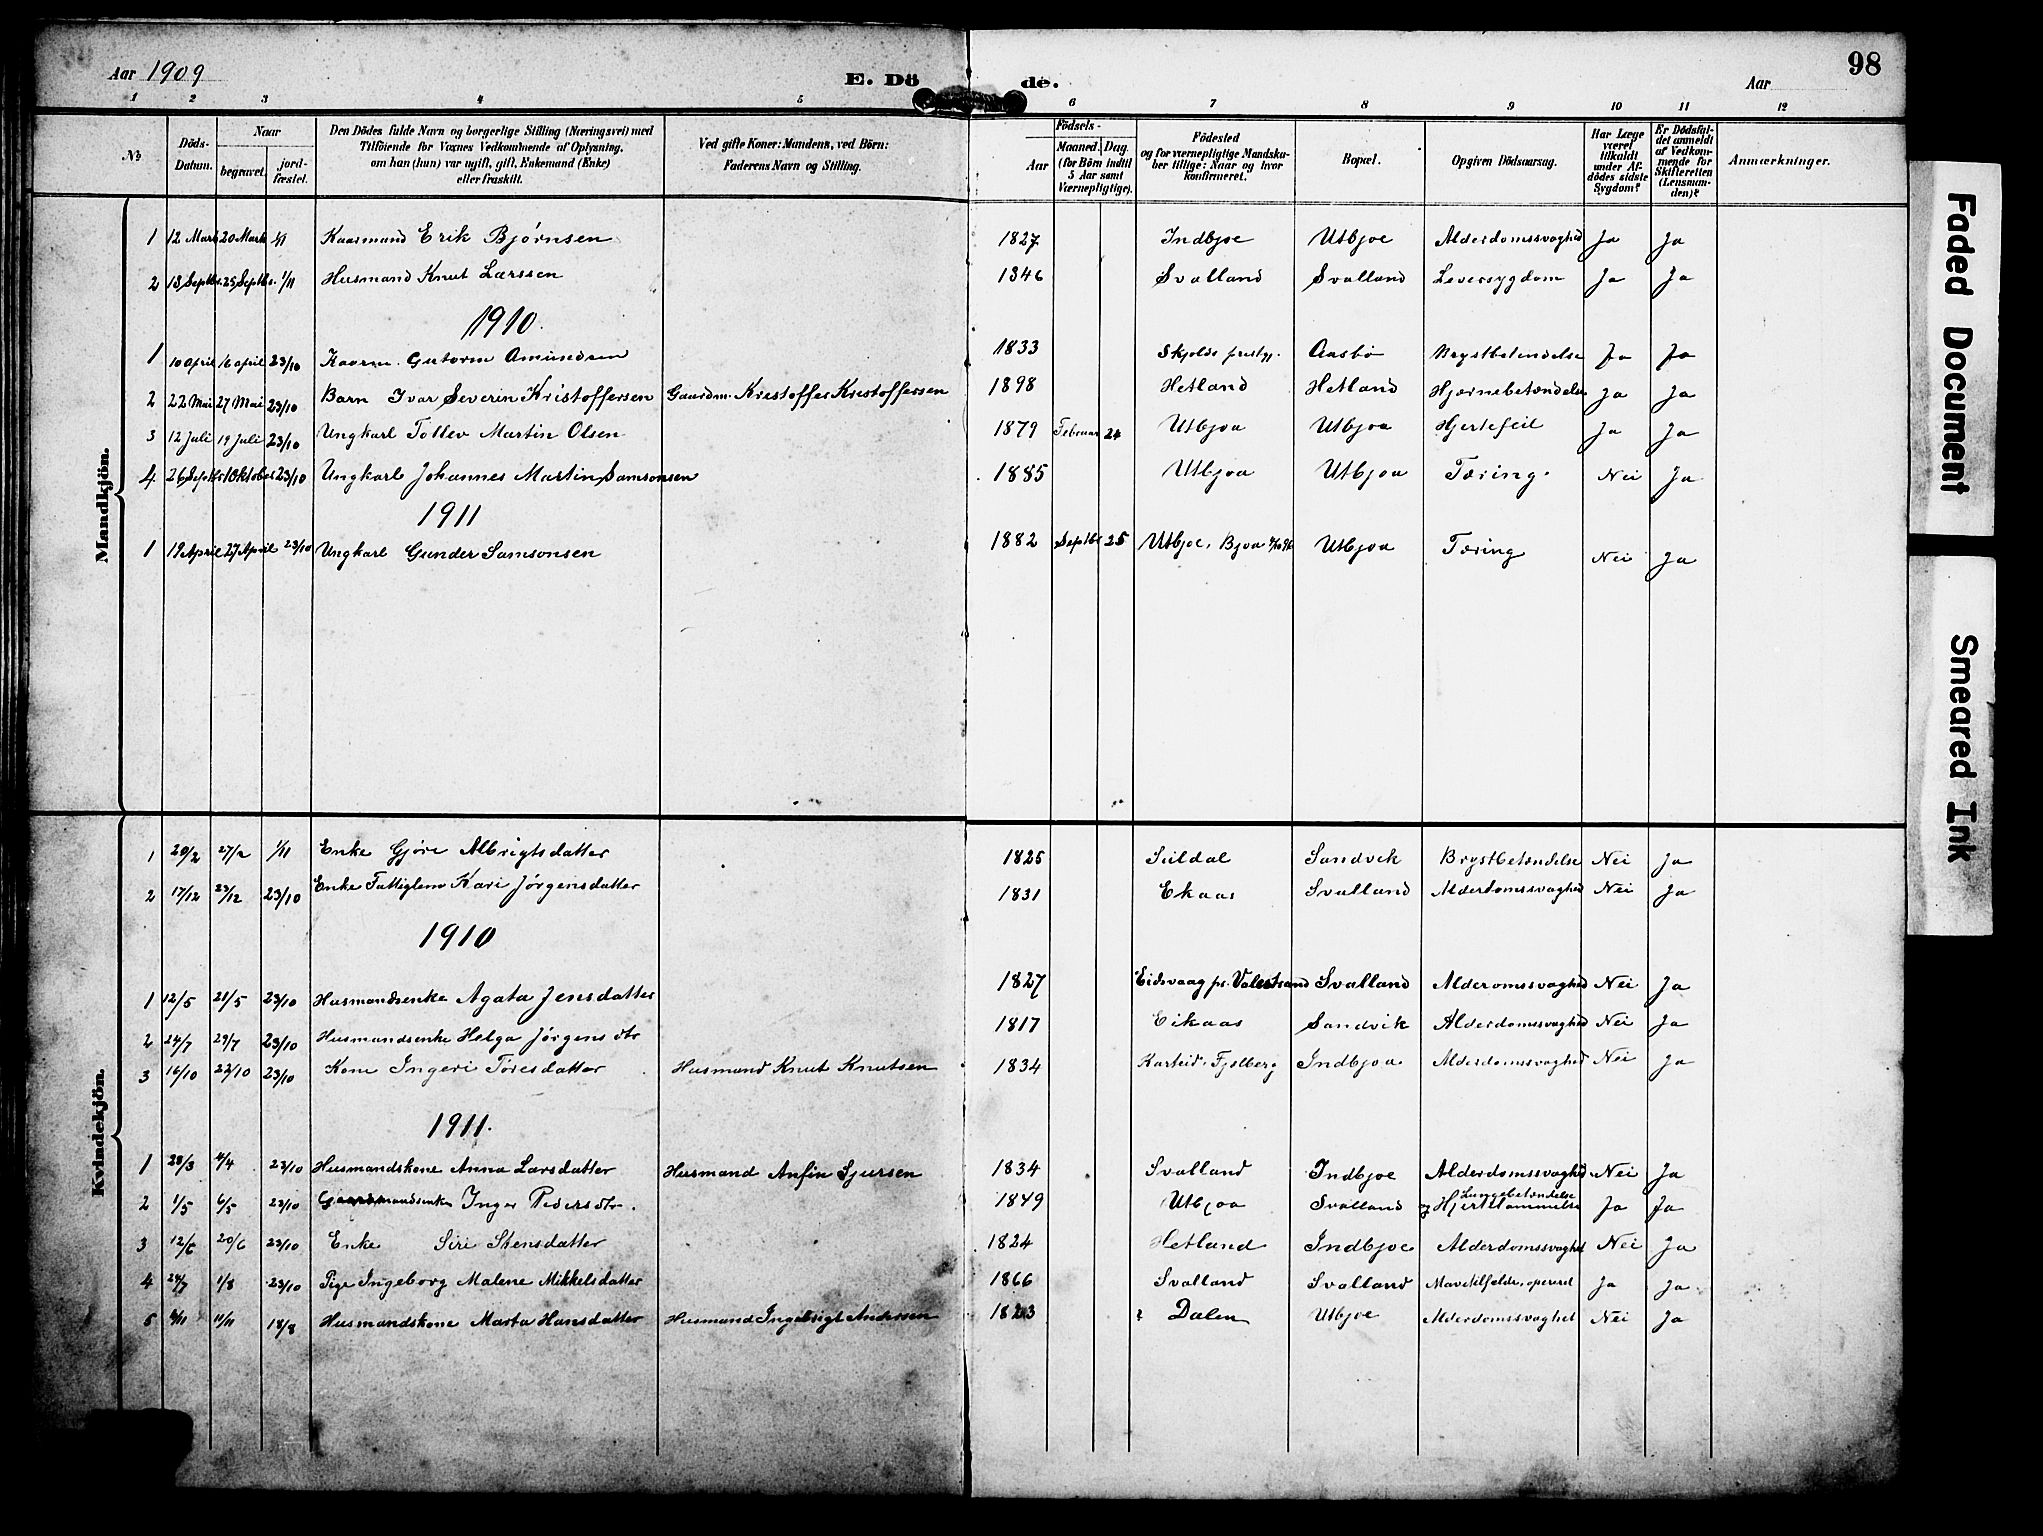 Aar 1909
E. Döde.
Aar
98
1 2 3 4 5 6 7 8 9 10 11 12
№
Döds-Datum.
Naar
begravet.
jord-fæstet.
Den Dödes fulde Navn og borgerlige Stilling (Næringsvei) med
Tilföiende for Voxnes Vedkommende af Oplysning,
om han (hun) var ugift, gift, Enkemand (Enke)
eller fraskilt.
Ved gifte Koner: Mandens, ved Börn:
Faderens Navn og Stilling.
Födsels-
Aar
Maaned. Dag.
(for Börn indtil
5 Aar samt
Værnepligtige).
Födested
og for værnepligtige Mandska-
ber tillige: Naar og hvor
konfirmeret.
Bopæl.
Opgiven Dödsaarsag.
Har Læge
været
tilkaldt
under Af-
dödes sidste
Sygdom?
Er Dödsfal-
det anmeldt
af Vedkom-
mende for
Skifteretten
(Lensman-
den)?
Anmærkninger.
Mandkjön.
1 12 Mars 20 Mars 1/11 Kaarmand Erik Bjørnsen 1827 Indbjoe Utbjoe Alderdomssvaghed Ja Ja
2 18 Septbr. 25 Septbr. 1/11 Husmand Knut Larssen 1846 Svalland Svalland Leversygdom Ja Ja
1910.
1 10 April 16 april 23/10 Kaarm. Gutorm Amundsen 1833 Skjolds prestgj. Aasbø Brystbetendelse Ja Ja
2 22 Mai 27 Mai 23/10 Barn Ivar Severin Kristoffersen Gaardm. Kristoffer Kristoffersen 1898 Hetland Hetland Hjernebetændelse Ja Ja
3 12 Juli 19 Juli 23/10 Ungkarl Tollev Martin Olsen 1879 Februar 24 Utbjoa Utbjoa Hjertefeil Ja Ja
4 26 Septbr 1 Oktober 23/10 Ungkarl Johannes Martin Samsonsen 1885 Utbjoa Utbjoa Tæring. Nei Ja
1911
1 19 April 27 April 23/10 Ungkarl Gunder Samsonsen 1882 Septbr 25 Utbjoe, Bjoa Utbjoa Tæring Nei Ja
Kvindekjön.
1 20/2 27/2 1/11 Enke Gjøri Albrigtsdatter 1825 Suldal Sandvik Brystbetændelse Nei Ja
2 17/12 23/12 23/10 Enke Fattiglem Kari Jørgensdatter 1831 Ekaas Svalland Alderdomssvaghed Nei Ja
1910
1 12/5 21/5 23/10 Husmandsenke Agata Jensdatter 1827 Eidsvaag pr. Valestrand Svalland Alderomssvaghed Nei Ja
2 24/7 29/7 23/10 Husmandsenke Helga Jørgensdtr 1817 Eikaas Sandvik Alderdomssvaghed Nei Ja
3 16/10 22/10 23/10 Kone Ingeri Tøresdatter Husmand Knut Knutsen 1834 Fjelberg Indbjoa Alderdomssvaghed Nei Ja
1911.
1 28/3 4/4 23/10 Husmandskone Anna Larsdatter Husmand Anfin Sjursen 1834 Svalland Indbjoe Alderdomssvaghed Nei Ja
2 1/5 6/5 23/10 Gaardmandsenke Inger Pedersdtr. 1849 Utbjoa Svalland Lungebetændelse og Hjertelammelse Ja Ja
3 12/6 20/6 23/10 Enke Siri Stensdatter 1824 Hetland Indbjoe Alderdomssvaghet Nei Ja
4 24/7 1/8 23/10 Pige Ingeborg Malene Mikkelsdatter 1866 Svalland Svalland Mavetilfælde, opereret Ja Ja
5 11/11 18/8 Husmandskone Marta Hansdatter Husmand Ingebrigt Anderssen 1823 Dalen Utbjoe Alderdomssvaghet Nei Ja
Faded Document
Smeared Ink